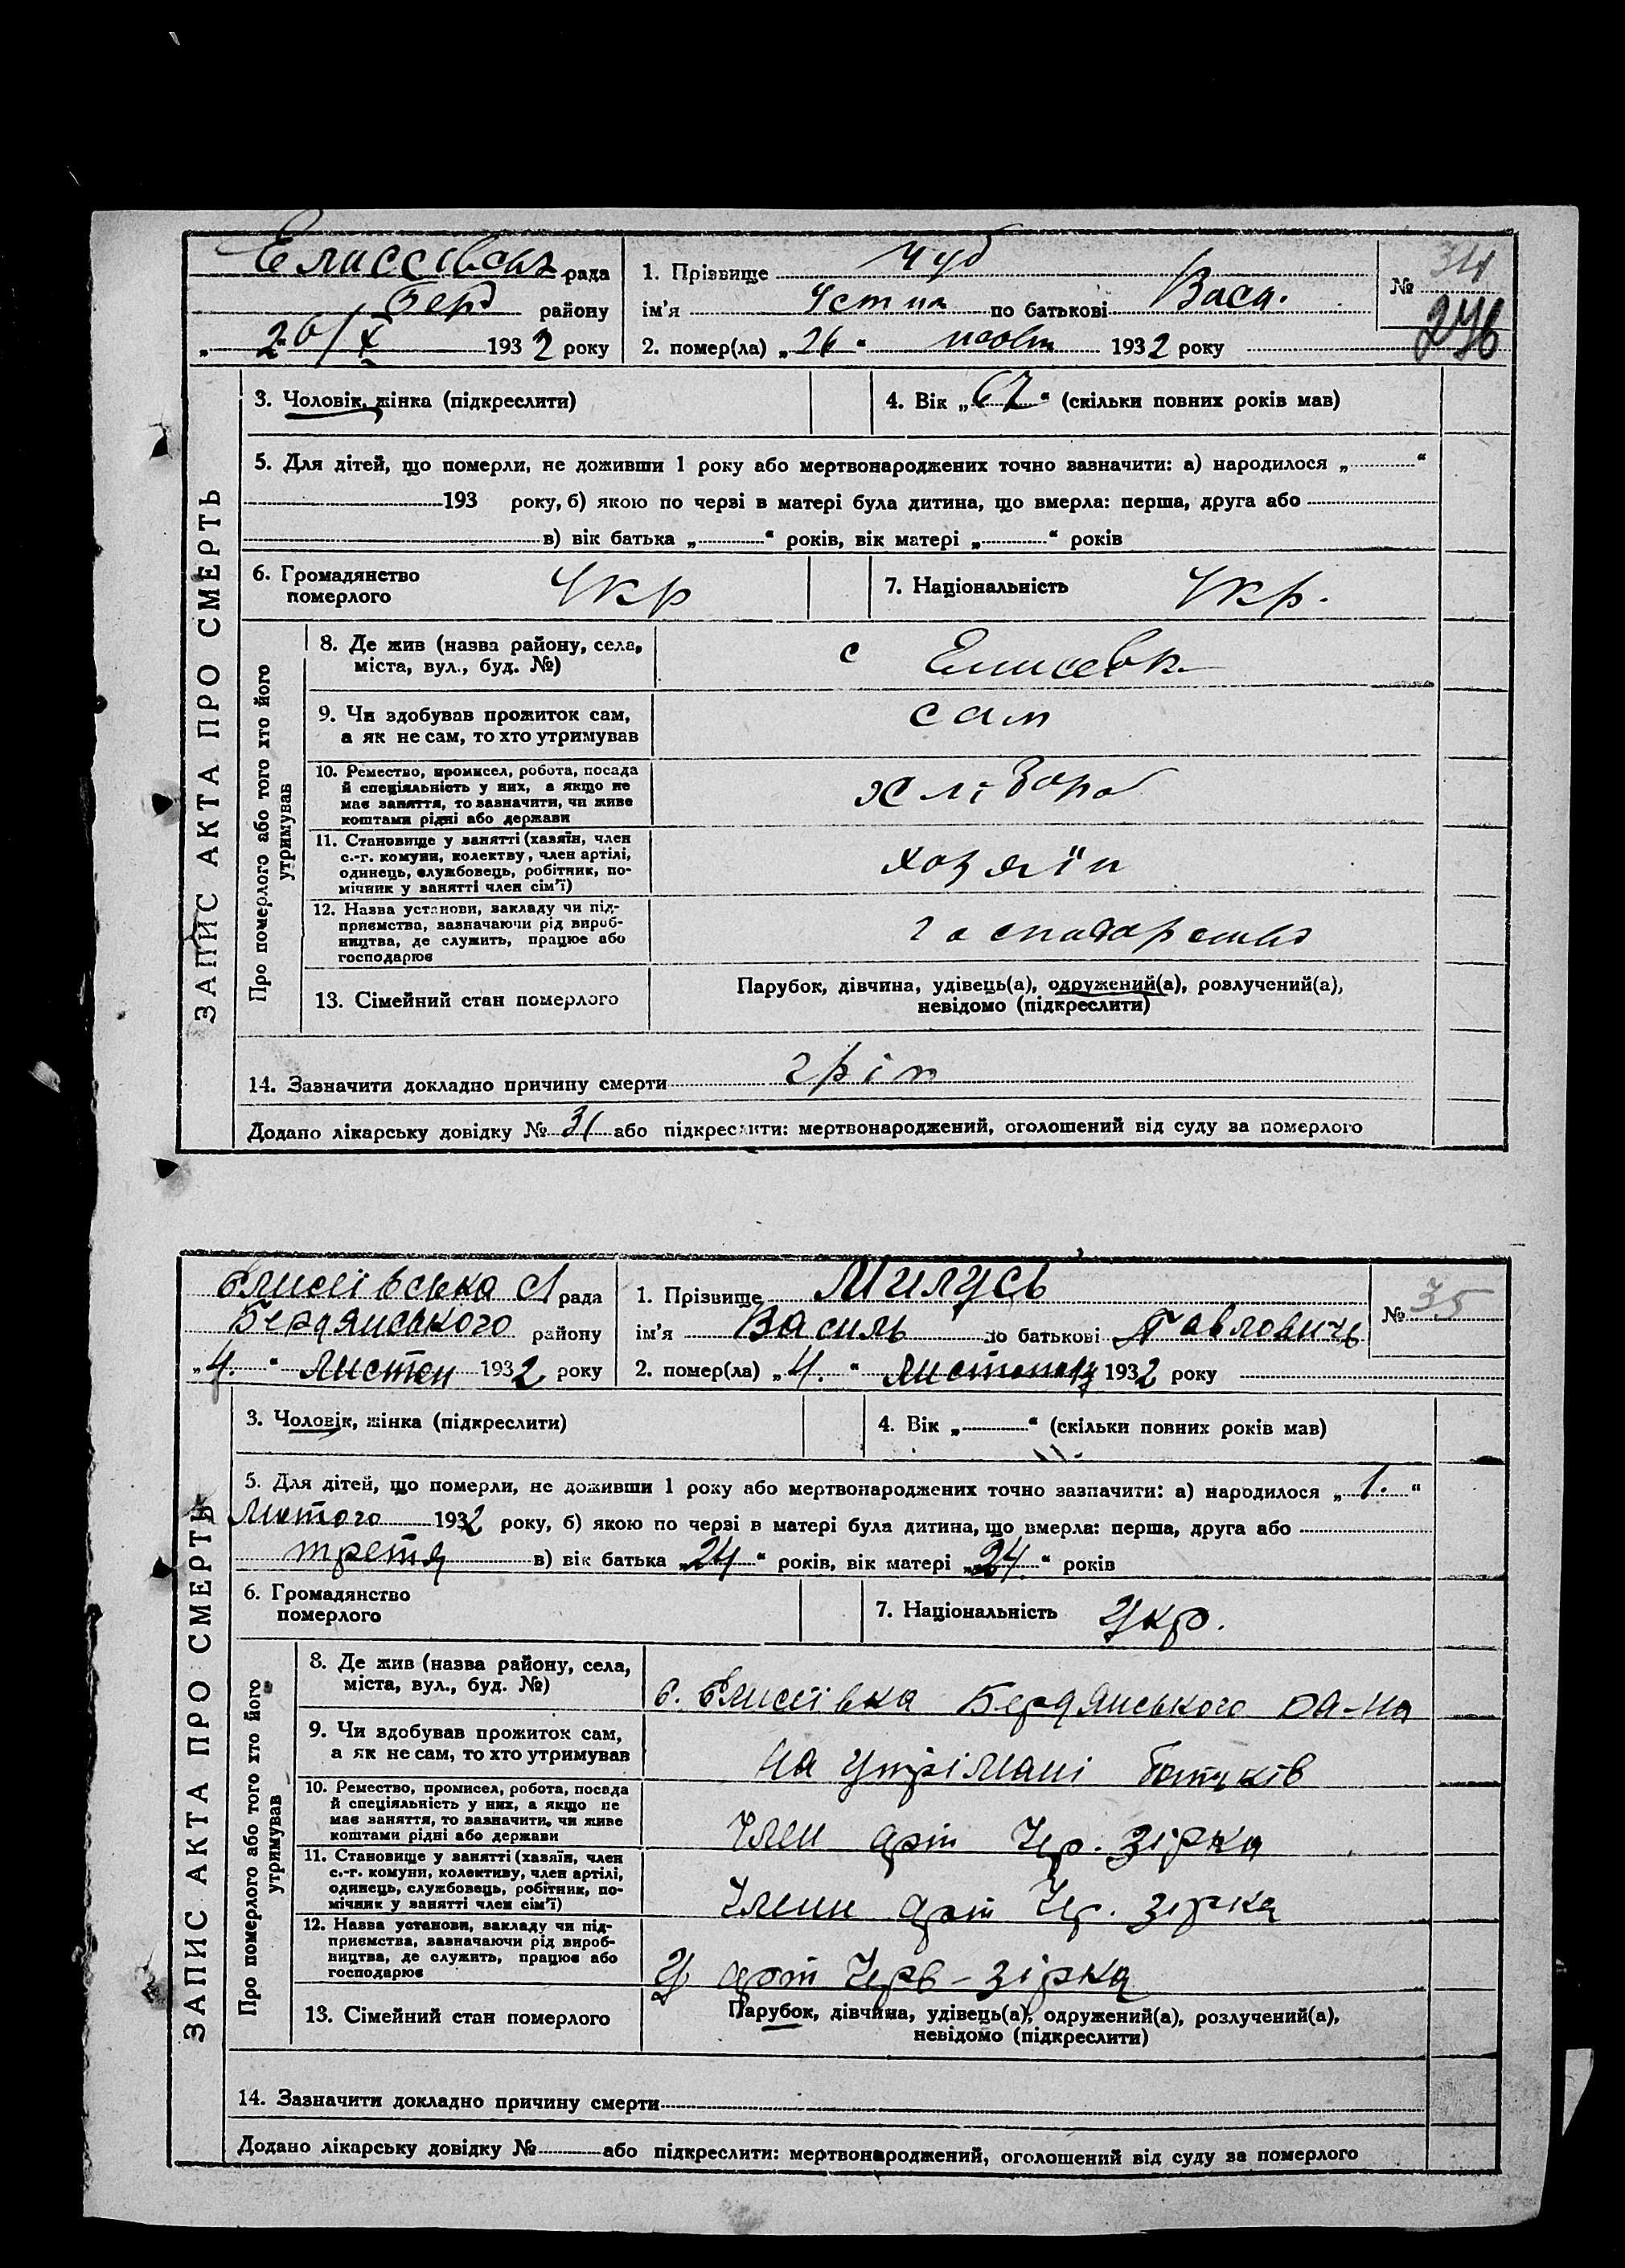 Елисеївська рада
Берд району
„ 26/X 1932 року
1. Прізвище Чуб
ім'я Устин по батькові Васи.
2. помер(ла) „26“ жовтн 1932 року
№ 34
276
ЗАПИС АКТА ПРО СМЕРТЬ
3. Чоловік, жінка (підкреслити)
4. Вік „67“ (скільки повних років мав)
5. Для дітей, що померли, не доживши 1 року або мертвонароджених точно зазначити: а) народилося „ “
193 року, б) якою по черзі в матері була дитина, що вмерла: перша, друга або
в) вік батька „ “ років, вік матері „ “ років
6. Громадянство
померлого Укр
7. Національність Укр.
Про померлого або того хто його
утримував
8. Де жив (назва району, села,
міста, вул., буд. №) с Елисевк
9. Чи здобував прожиток сам,
а як не сам, то хто утримував сам
10. Ремество, промисел, робота, посада
й спеціяльність у них, а якщо не
має заняття, то зазначити, чи живе
коштами рідні або держави
хлібороб
11. Становище у занятті (хазяїн, член
с.-г. комуни, колектву, член артілі,
одинець, службовець, робітник, по-
мічник у занятті член сім'ї)
хозяїн
12. Назва установи, закладу чи під-
приємства, зазначаючи рід вироб-
ництва, де служить, працює або
господарює
господарства
13. Сімейний стан померлого
Парубок, дівчина, удівець(а), одружений(а), розлучений(а),
невідомо (підкреслити)
14. Зазначити докладно причину смерти гріп
Додано лікарську довідку № 31 або підкреслити: мертвонароджений, оголошений від суду за померлого
Єлисеївська С рада
Бердянського району
„4.“ Листоп 1932 року
1. Прізвище Милусь
ім'я Василь по батькові Павловичь
2. помер(ла) „4.“ Листопад 1932 року
№ 35
ЗАПИС АКТА ПРО СМЕРТЬ
3. Чоловік, жінка (підкреслити)
4. Вік „ “ (скільки повних років мав)
5. Для дітей, що померли, не доживши 1 року або мертвонароджених точно зазначити: а) народилося „1.“
Лютого 1932 року, б) якою по черзі в матері була дитина, що вмерла: перша, друга або
третя в) вік батька „24“ років, вік матері „24.“ років
6. Громадянство
померлого
7. Національність Укр.
Про померлого або того хто його
утримував
8. Де жив (назва району, села,
міста, вул., буд. №)
с. Єлисеївка Бердянського ра-на
9. Чи здобував прожиток сам,
а як не сам, то хто утримував
на утрімані батьків
10. Ремество, промисел, робота, посада
й спеціяльність у них, а якщо не
має заняття, то зазначити, чи живе
коштами рідні або держави
Член арт Чер. зірка
11. Становище у занятті (хазяїн, член
с.-г. комуни, колективу, член артілі,
одинець, службовець, робітник, по-
мічник у занятті член сім'ї)
Члени арт Чер. зірка
12. Назва установи, закладу чи під-
приємства, зазначаючи рід вироб-
ництва, де служить, працює або
господарює
У арт Черв-зірка
13. Сімейний стан померлого
Парубок, дівчина, удівець(а), одружений(а), розлучений(а),
невідомо (підкреслити)
14. Зазначити докладно причину смерти
Додано лікарську довідку № або підкреслити: мертвонароджений, оголошений від суду за померлого